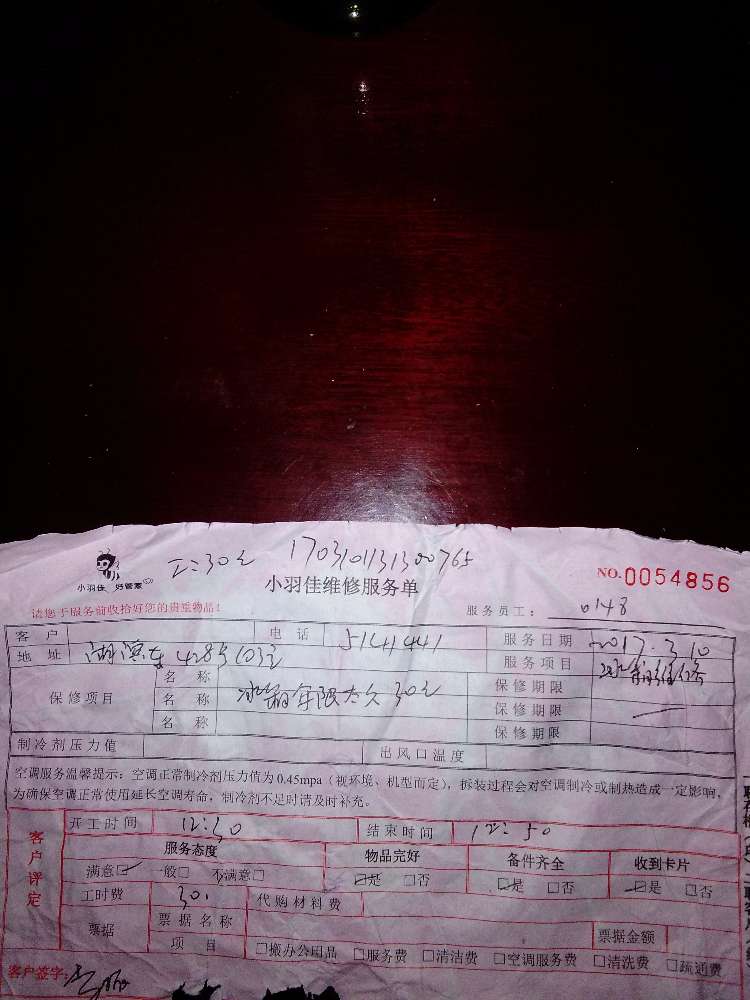 工:30元 170310131300765
小羽佳 好管家
小羽佳维修服务单
NO.0054856
请您于服务前收拾好您的贵重物品!
服务员工: 0148
客户 电话 5141441 服务日期 2017.3.10
地址 428号103室 服务项目 冰箱维修
保修项目 名称 保修期限
名称 冰箱年限太久 30元 保修期限
名称 保修期限
制冷剂压力值 出风口温度
空调服务温馨提示:空调正常制冷剂压力值为0.45mpa(视环境、机型而定),拆装过程会对空调制冷或制热造成一定影响,
为确保空调正常使用延长空调寿命,制冷剂不足时请及时补充。
开工时间 12:30 结束时间 12:50
客户评定
服务态度 物品完好 备件齐全 收到卡片
满意☑ 一般□ 不满意□ ☑是 □否 ☑是 □否 ☑是 □否
工时费 30. 代购材料费
票据 票据名称 票据金额
项目 □搬办公用品 □服务费 □清洁费 □空调服务费 □清洗费 □疏通费
客户签字: